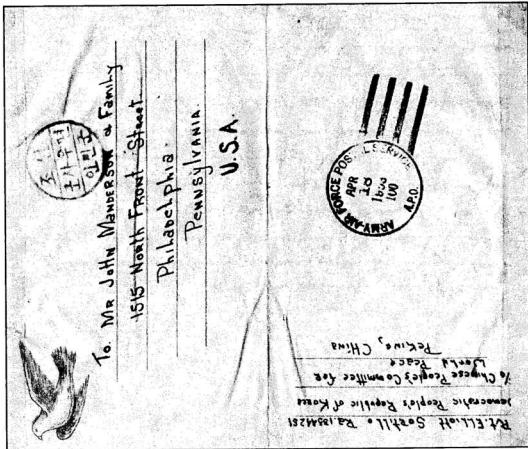 To. Mr John Manderson & Family
1515 North Front Street
Philadelphia.
Pennsylvania.
U.S.A.
ARMY-AIR FORCE POSTAL SERVICE
APR
18
100
A.P.O.
Elliott Sortillo
Democratic People's Republic of Korea
% Chinese People's Committee for
World Peace
Peking, China